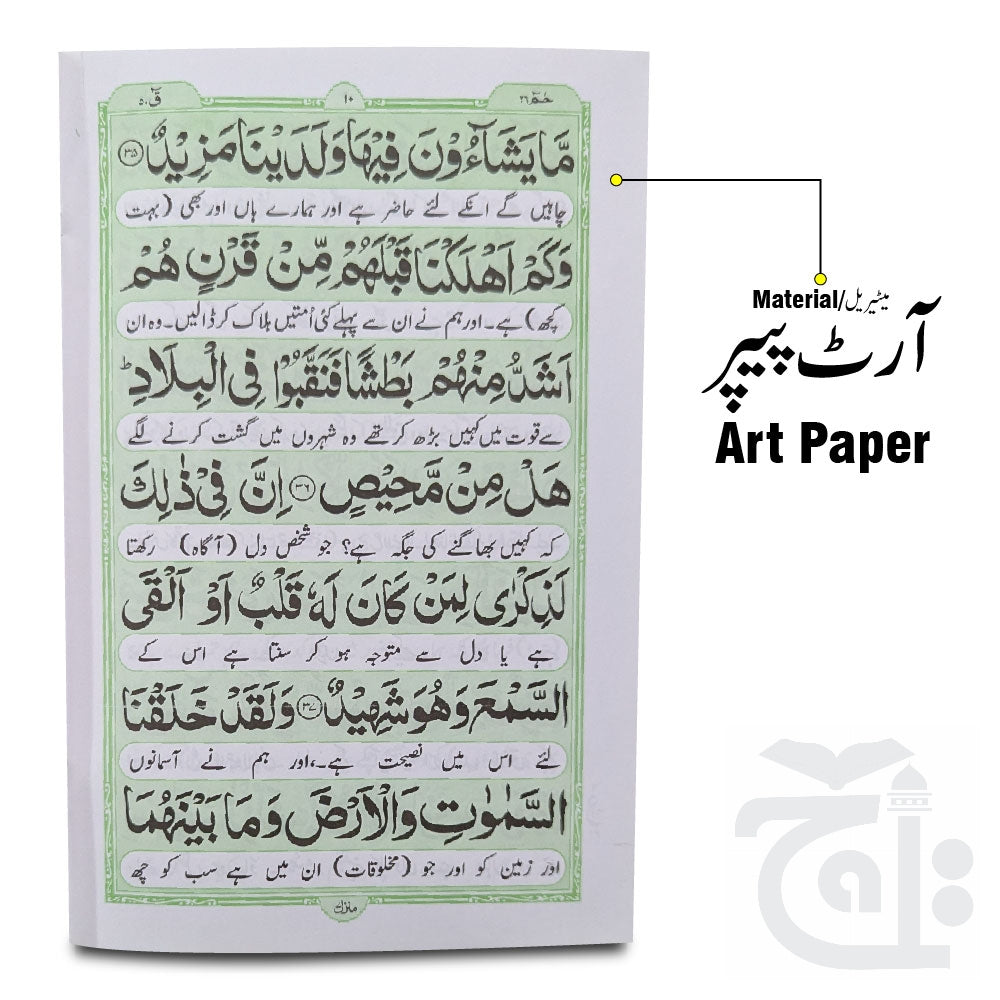 حٰمٓ ٢٦
١٠
قٓ ٥٠
مَّا يَشَآءُوْنَ فِيْهَا وَلَدَيْنَا مَزِيْدٌ ﴿٣٥﴾
چاہیں گے انکے لئے حاضر ہے اور ہمارے ہاں اور بھی (بہت
وَكَمْ اَهْلَكْنَا قَبْلَهُمْ مِّنْ قَرْنٍ هُمْ
کچھ) ہے۔ اور ہم نے ان سے پہلے کئی اُمتیں ہلاک کر ڈالیں۔ وہ ان
اَشَدُّ مِنْهُمْ بَطْشًا فَنَقَّبُوْا فِى الْبِلَادِ ؕ
سے قوت میں کہیں بڑھ کر تھے وہ شہروں میں گشت کرنے لگے
هَلْ مِنْ مَّحِيْصٍ ﴿٣٦﴾ اِنَّ فِىْ ذٰلِكَ
کہ کہیں بھاگنے کی جگہ ہے؟ جو شخص دل (آگاہ) رکھتا
لَذِكْرٰى لِمَنْ كَانَ لَهٗ قَلْبٌ اَوْ اَلْقَى
ہے یا دل سے متوجہ ہو کر سنتا ہے اس کے
السَّمْعَ وَهُوَ شَهِيْدٌ ﴿٣٧﴾ وَلَقَدْ خَلَقْنَا
لئے اس میں نصیحت ہے۔،اور ہم نے آسمانوں
السَّمٰوٰتِ وَالْاَرْضَ وَمَا بَيْنَهُمَا
اور زمین کو اور جو (مخلوقات) ان میں ہے سب کو چھ
منزل
Material/میٹیریل
آرٹ پیپر
Art Paper